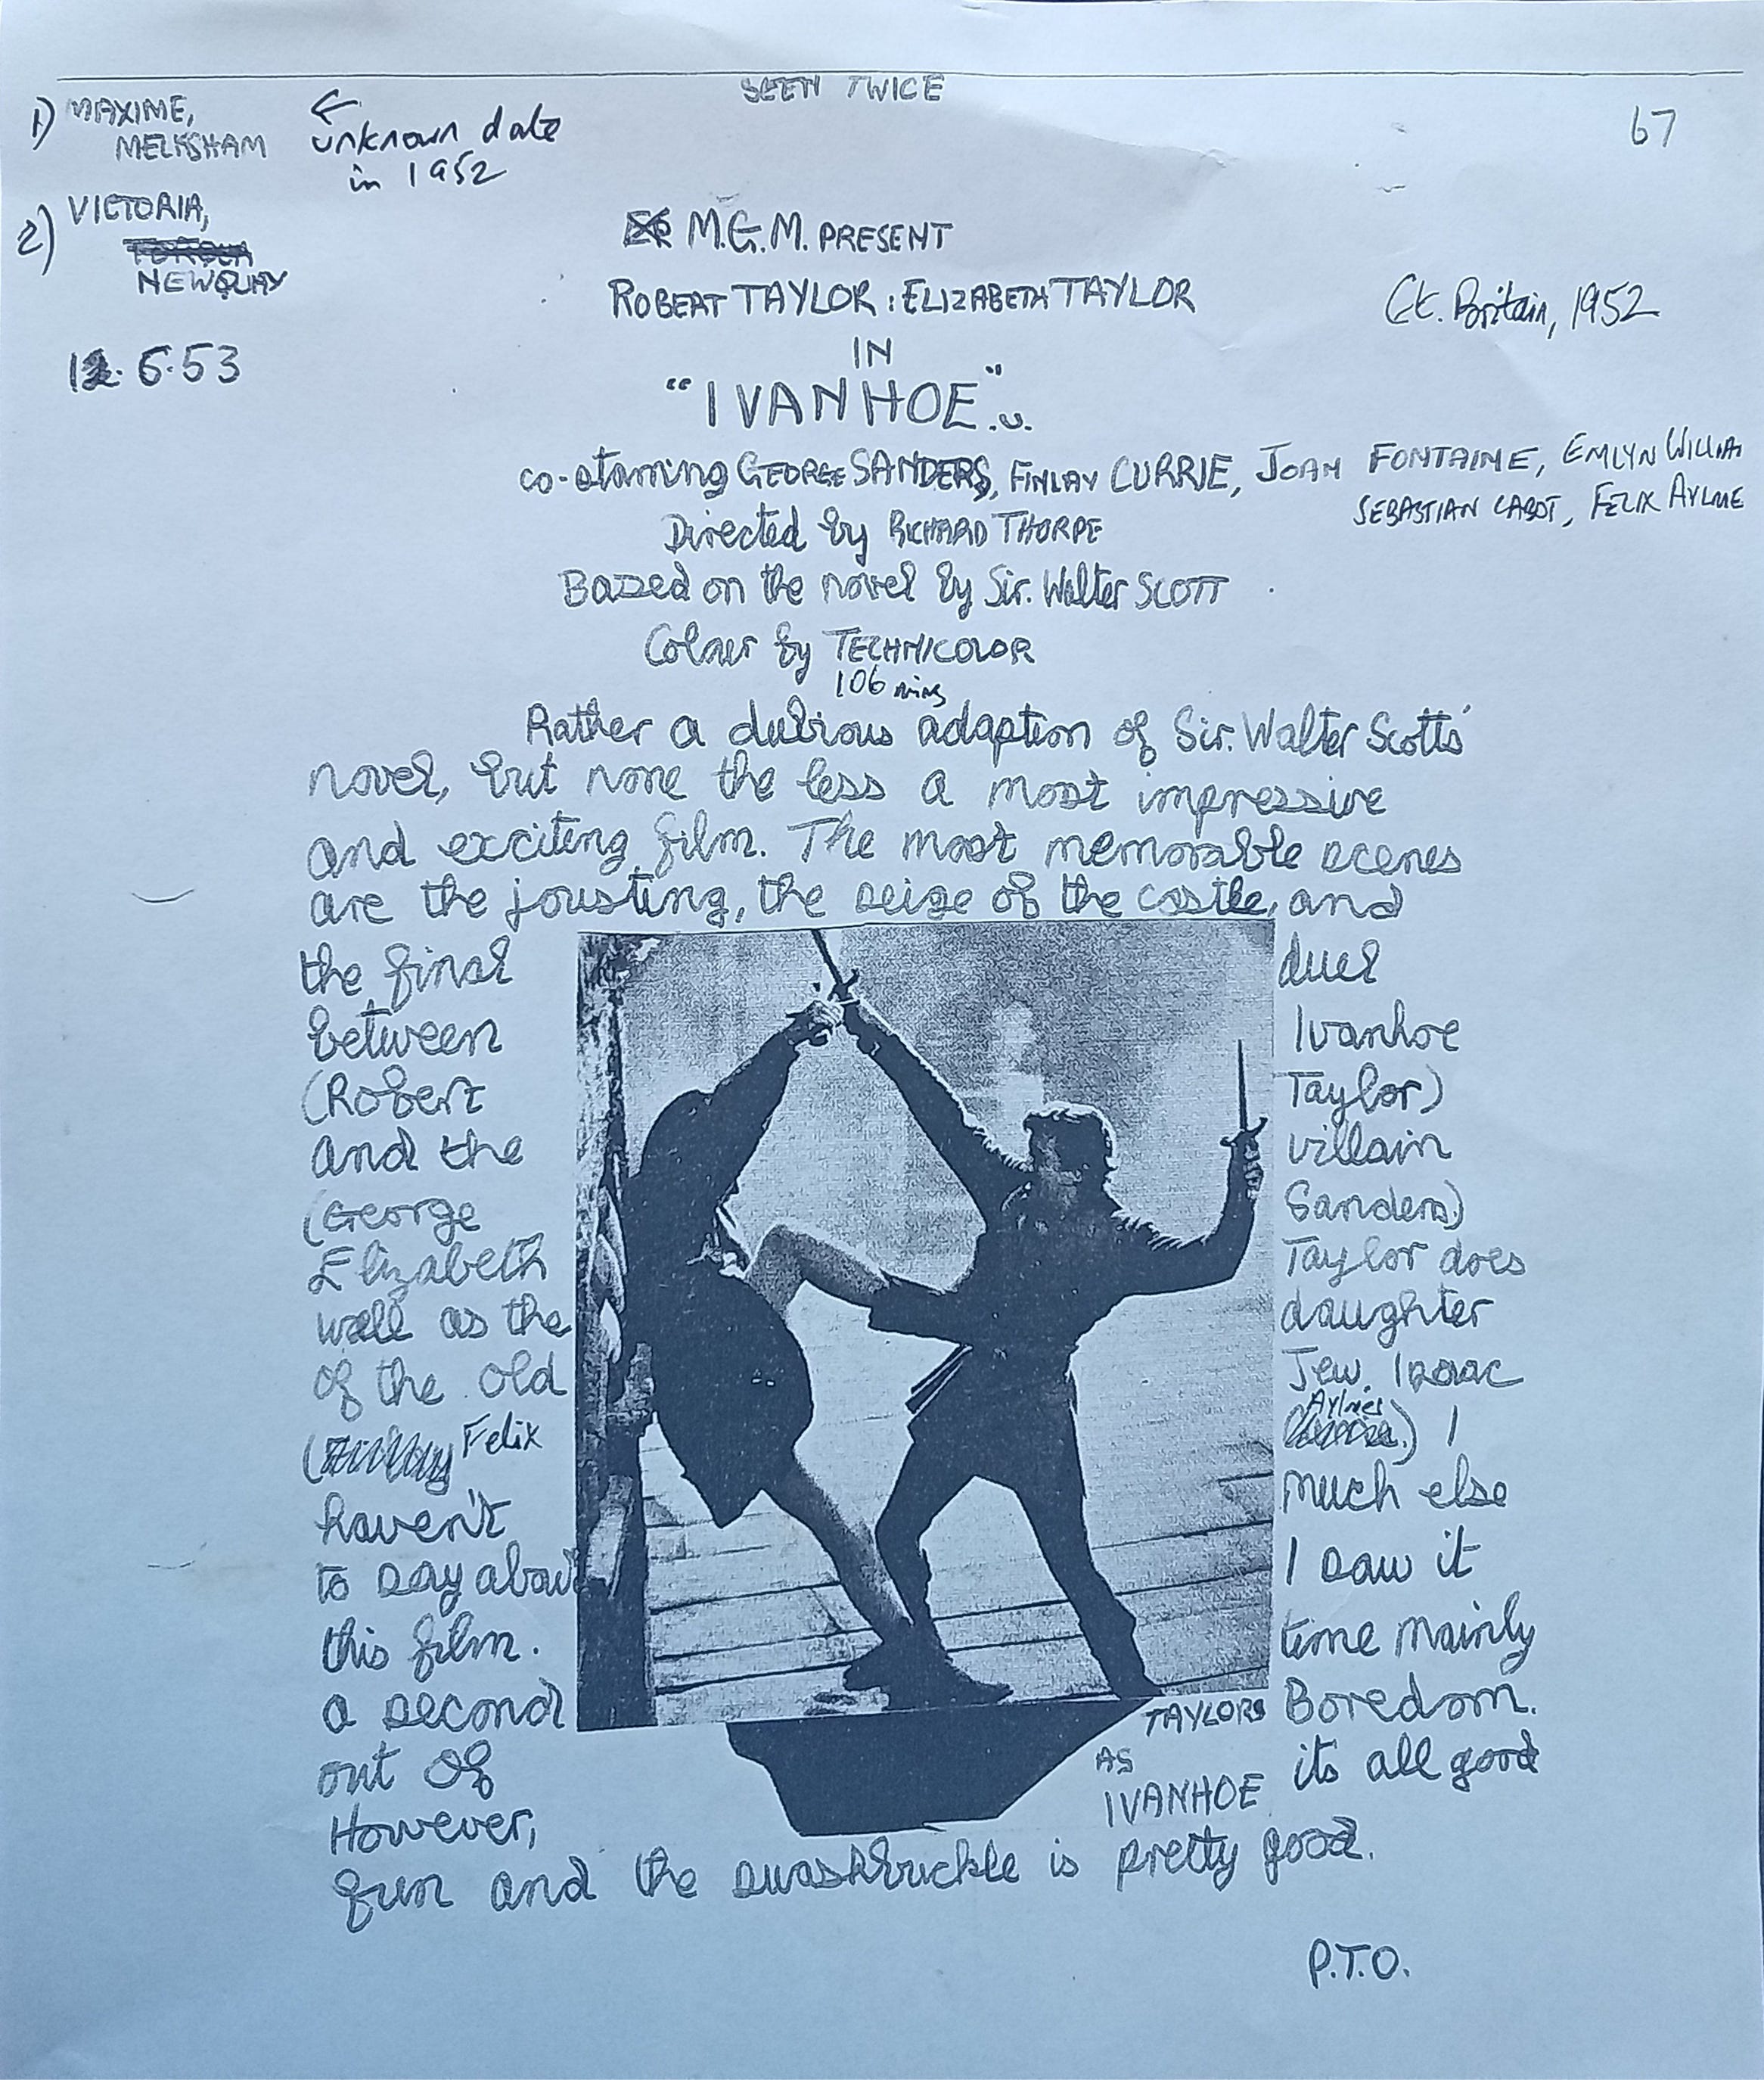 SEEN TWICE
1) MAXIME,
MELKSHAM
← unknown date
in 1952
67
2) VICTORIA,
NEWQUAY
12.6.53
M.G.M. PRESENT
ROBERT TAYLOR : ELIZABETH TAYLOR
Gt. Britain, 1952
IN
"IVANHOE".U.
co-starring GEORGE SANDERS, FINLAY CURRIE, JOAN FONTAINE, EMLYN WILLIA
SEBASTIAN CABOT, FELIX AYLME
Directed by RICHARD THORPE
Bazzed on the novel by Sir. Walter SCOTT
Colour by TECHNICOLOR
106 mins
Rather a dubious adaption of Sir. Walter Scotts'
novel, but none the less a most impressive
and exciting film. The most memorable scenes
are the jousting, the seige of the castle, and
the final duel
between Ivanhoe
(Robert Taylor)
and the villain
(George Sanders)
Elizabeth Taylor does
well as the daughter
of the old Jew. Isaac
(Felix Aylmer) I
haven't much else
to say about I saw it
this film. time mainly
a second Boredom.
out of its all good
However,
TAYLORS
AS
IVANHOE
fun and the swashbuckle is pretty good.
P.T.O.